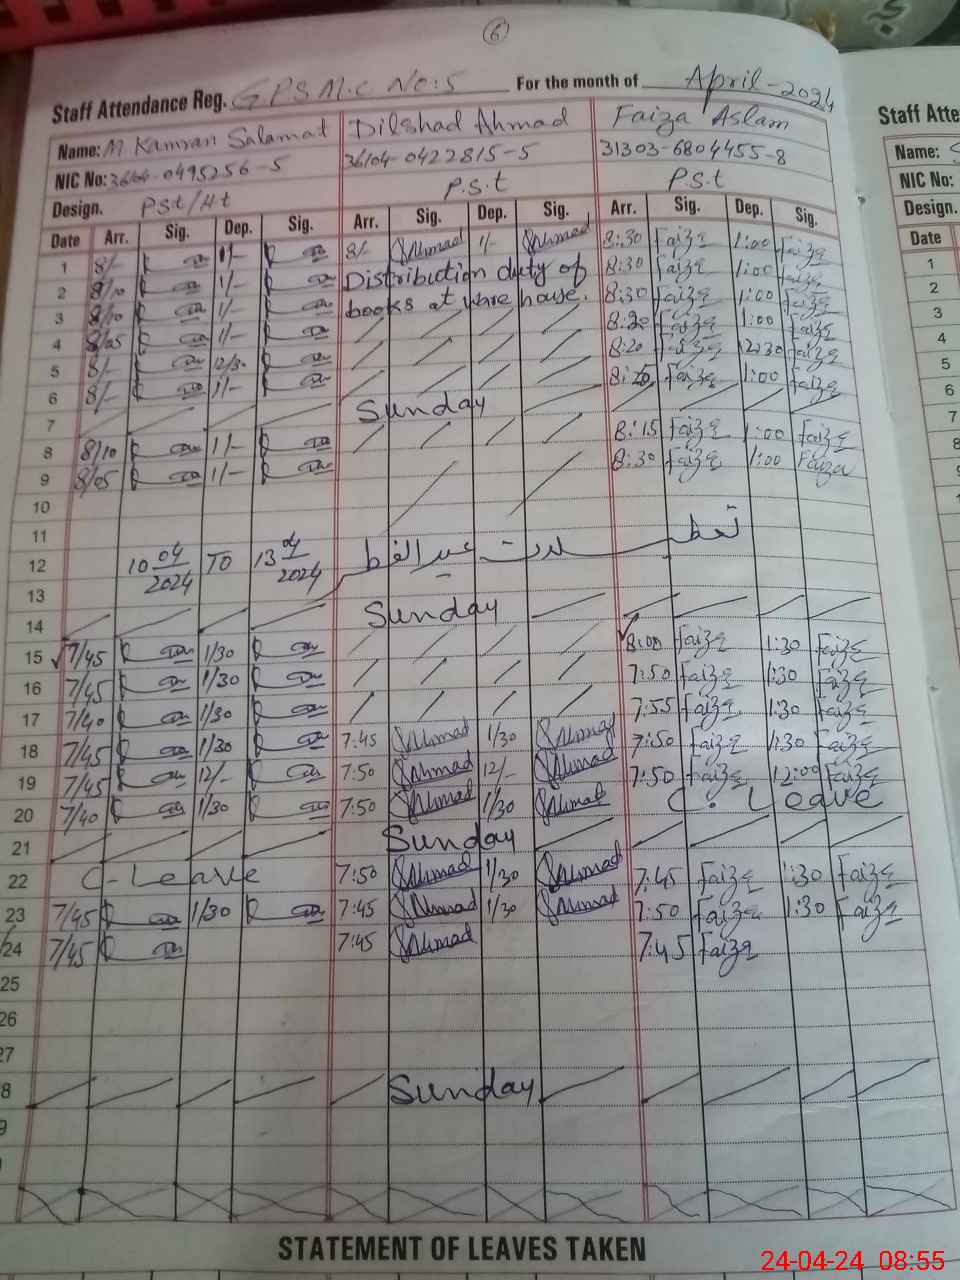 6
Staff Attendance Reg. G P S M.C No:5 For the month of April-2024
Staff Atte
Name: M Kamran Salamat Dilshad Ahmad Faiza Aslam
Name:
NIC No: 36104-0495256-5 36104-0422815-5 31303-6804455-8
NIC No:
Design. PSt/Ht P.S.t P.S.t
Design.
Date Arr. Sig. Dep. Sig. Arr. Sig. Dep. Sig. Arr. Sig. Dep. Sig.
Date
1 8/- 1/- 8/- SAhmad 1/- SAhmad 8:30 Faiza 1:00 Faiza
1
2 8/10 1/- Distribution duty of 8:30 Faiza 1:00 Faiza
2
3 8/10 1/- books at whre house. 8:30 Faiza 1:00 Faiza
3
4 8/05 1/- 8:20 Faiza 1:00 Faiza
4
5 8/- 12/30 8:20 Faiza 12:30 Faiza
5
6 8/- 1/- 8:20 Faiza 1:00 Faiza
6
7 Sunday
7
8 8/10 1/- 8:15 Faiza 1:00 Faiza
8
9 8/05 1/- 8:30 Faiza 1:00 Faiza
9
10
11
12 10 04/2024 TO 13 04/2024 تعطیلات عید الفطر
13
14 Sunday
15 7/45 1/30 8:00 Faiza 1:30 Faiza
16 7/45 1/30 7:50 Faiza 1:30 Faiza
17 7/40 1/30 7:55 Faiza 1:30 Faiza
18 7/45 1/30 7:45 SAhmad 1/30 SAhmad 7:50 Faiza 1:30 Faiza
19 7/45 12/- 7:50 SAhmad 12/- SAhmad 7:50 Faiza 12:00 Faiza
20 7/40 1/30 7:50 SAhmad 1/30 SAhmad C. Leave
21 Sunday
22 C-Leave 7:50 SAhmad 1/30 SAhmad 7:45 Faiza 1:30 Faiza
23 7/45 1/30 7:45 SAhmad 1/30 SAhmad 7:50 Faiza 1:30 Faiza
24 7/45 7:45 SAhmad 7:45 Faiza
25
26
27
8 Sunday
9
STATEMENT OF LEAVES TAKEN
24-04-24 08:55